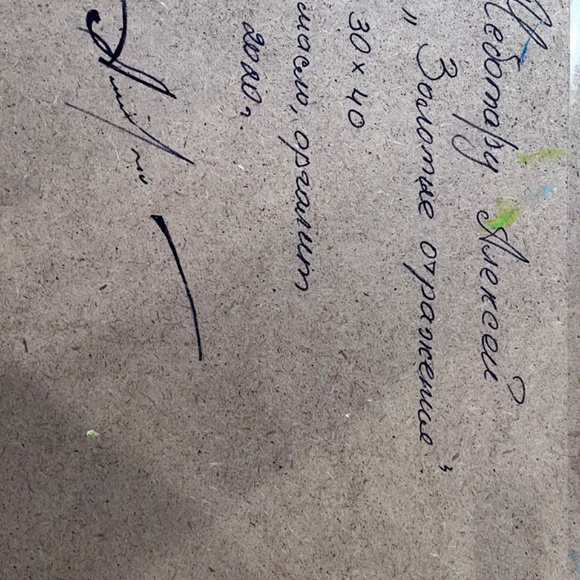 Чеботару Алексей
"Золотые отражения"
30 х 40
масло, оргалит
2020г.